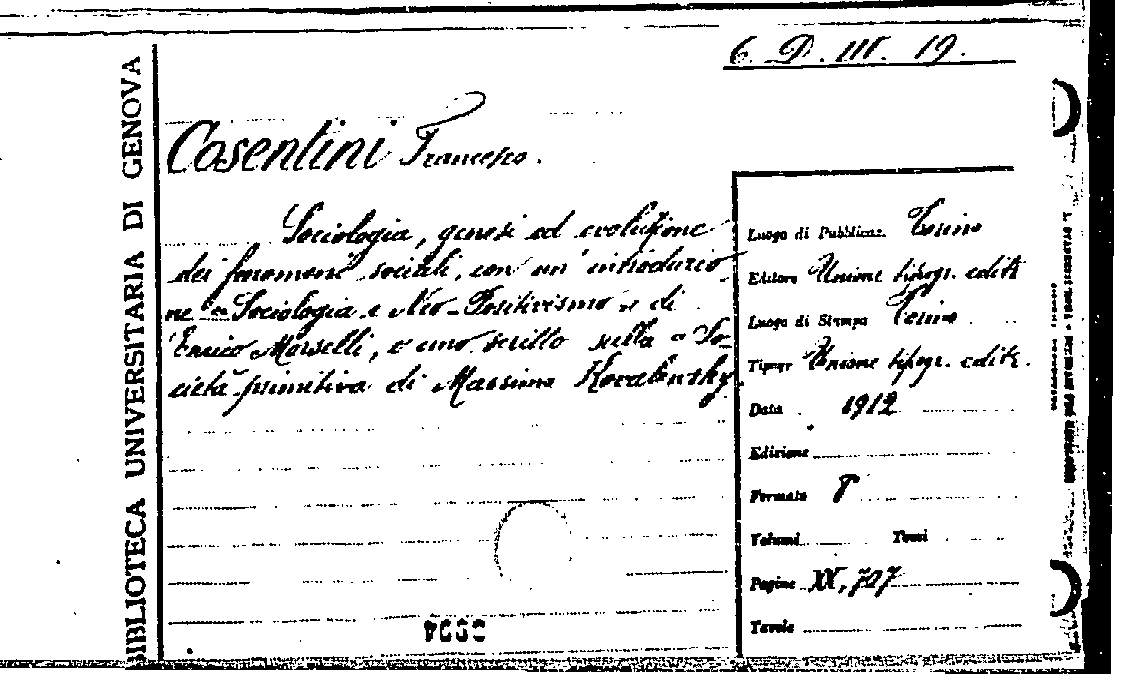 6. D. III. 19.
BIBLIOTECA UNIVERSITARIA DI GENOVA
Cosentini Francesco.
Sociologia, genesi ed evoluzione
dei fenomeni sociali, con un' introduzio
ne "Sociologia e Neo-Positivismo" di
Enrico Morselli, e uno scritto sulla "So-
cietà primitiva di Massimo Kovalewsky.
Luogo di Pubblicaz. Torino
Editore Unione tipogr. editr.
Luogo di Stampa Torino
Tipogr Unione tipogr. editr.
Data 1912
Edizione
Formato 8°
Volumi Tomi
Pagine XX, 707
Tavole